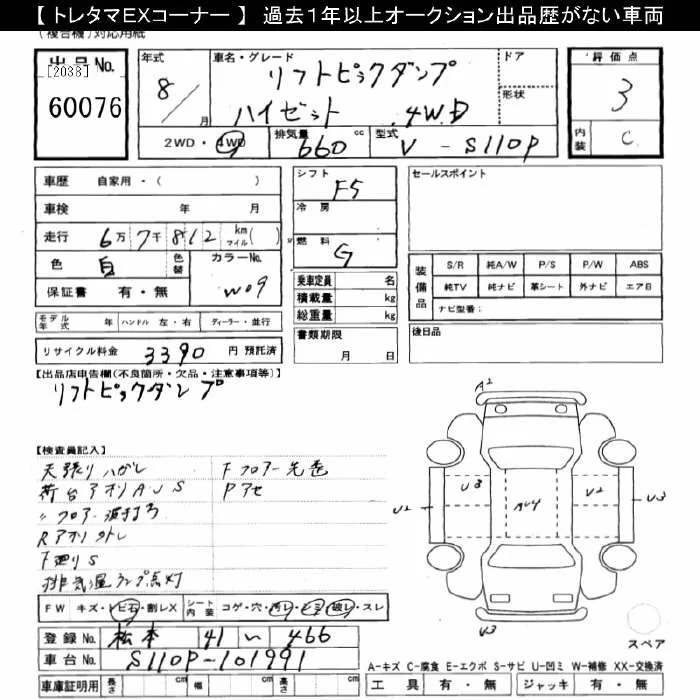 【 トレタマEXコーナー 】 過去１年以上オークション出品歴がない車両
（複合機）対応用紙
出品No.
[2033]
60076
年式
8／月
車名・グレード
リフトピックダンプ
ハイゼット 4W.D
ドア
形状
評価点
3
内装
C
2WD・4WD
排気量 660 cc
型式 V - S110P
車歴 自家用・（ ）
車検 年 月
走行 6万7千812 km マイル（ ）
色 白 色替 カラーNo. W09
保証書 有・無
モデル年式 年 ハンドル 左・右 ディーラー・並行
リサイクル料金 3390 円 預託済
シフト F5
冷房
燃料 G
乗車定員 名
積載量 kg
総重量 kg
書類期限
月 日
セールスポイント
装備品
S/R 純A/W P/S P/W ABS
純TV 純ナビ 革シート 外ナビ エア日
ナビ型番：
後日品
【出品店申告欄(不良箇所・欠品・注意事項等)】
リフトピックダンプ
【検査員記入】
天張りハガレ Fフロアー先巻
荷台アオリAUS Pアセ
〃フロアー波打ち
Rアオリ外レ
下廻りS
排気温ランプ点灯
A2
U3 A4 U2
U2 U3
U3
スペア
FW キズ・トビ石・割レX シート内装 コゲ・穴・汚レ・シミ・破レ・スレ
登録No. 松本 41 い 466
車台No. S110P-101991
車庫証明用 長さ cm 幅 cm 高さ cm
A-キズ C-腐食 E-エクボ S-サビ U-凹ミ W-補修 XX-交換済
工具 有・無 ジャッキ 有・無